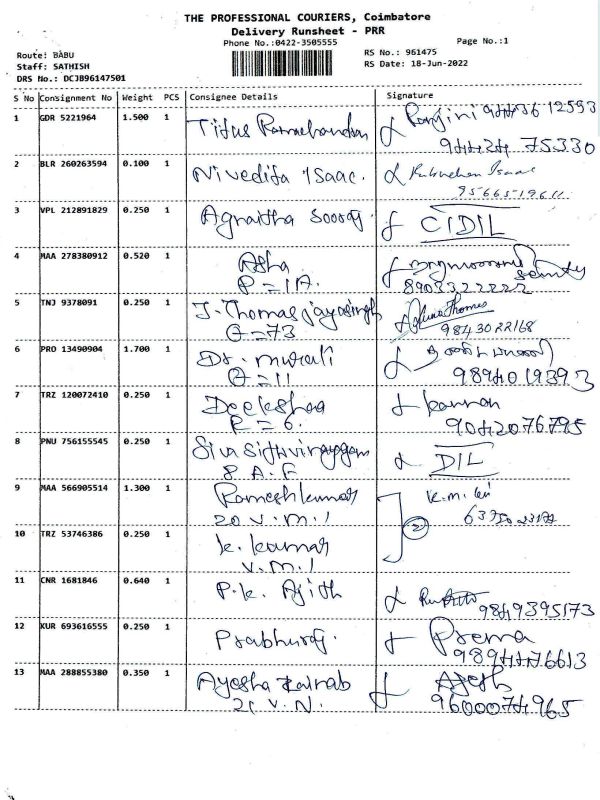 THE PROFESSIONAL COURIERS, Coimbatore
Delivery Runsheet - PRR
Phone No.:0422-3505555
Page No.:1
Route: BABU
Staff: SATHISH
DRS No.: DCJB96147501
RS No.: 961475
RS Date: 18-Jun-2022
S No Consignment No Weight PCS Consignee Details Signature
1 GDR 5221964 1.500 1 Titus Ramachandran
2 BLR 260263594 0.100 1 Nivedita Isaac.
3 VPL 212891829 0.250 1 Sooraj. CIDIL
4 MAA 278380912 0.520 1 Asha
P = 1A. 8903322222
5 TNJ 9378091 0.250 1 J. Thomas jayasingh Thomas
G = 73 9843022168
6 PRO 13490904 1.700 1 Dr. Murali
G = 11
7 TRZ 120072410 0.250 1 Deekshaa kannan
R = 6. 9042076795
8 PNU 756155545 0.250 1 DIL
8 A.F
9 MAA 566905514 1.300 1 Rameshkumar
20 V.M.1
10 TRZ 53746386 0.250 1 K. kumar
V.M.1
11 CNR 1681846 0.640 1 P.K. Ajith
9849395173
12 KUR 693616555 0.250 1 Prabhuraj. Prema
13 MAA 288855380 0.350 1 Ayesha Zainab
V.N. 9600074965